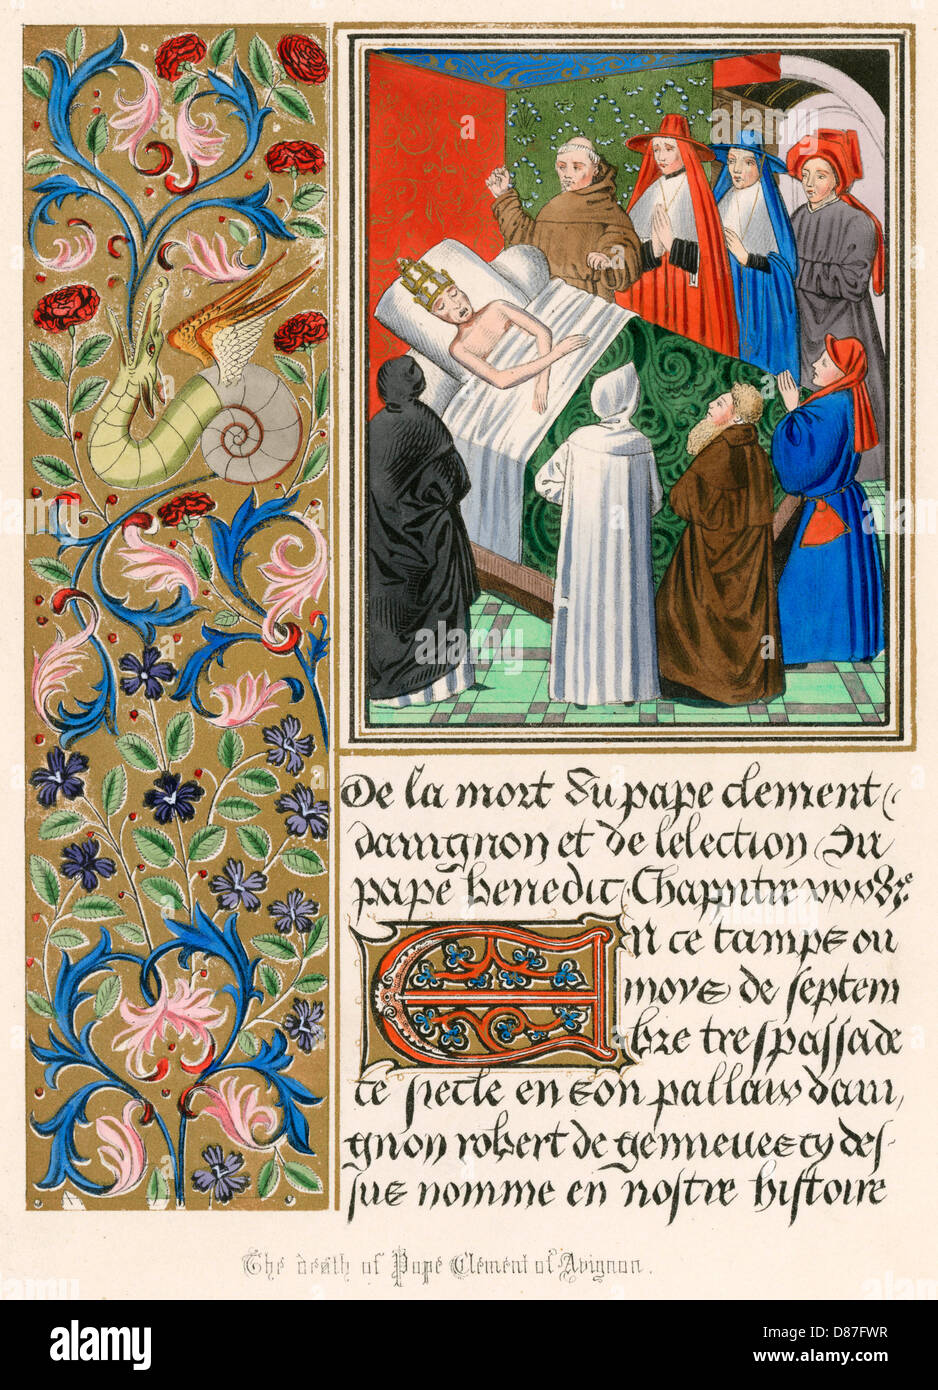 De la mort du pape clement
davignon et de lelection du
pape benedic Chappitre xxxviiie
En ce tamps ou
moys de septem
bre trespassa de
ce siecle en son pallais davi,
gnon robert de genneues cy des-
sus nomme en nostre histoire
The death of Pope Clement of Avignon.
alamy
Image ID: D87FWR
www.alamy.com